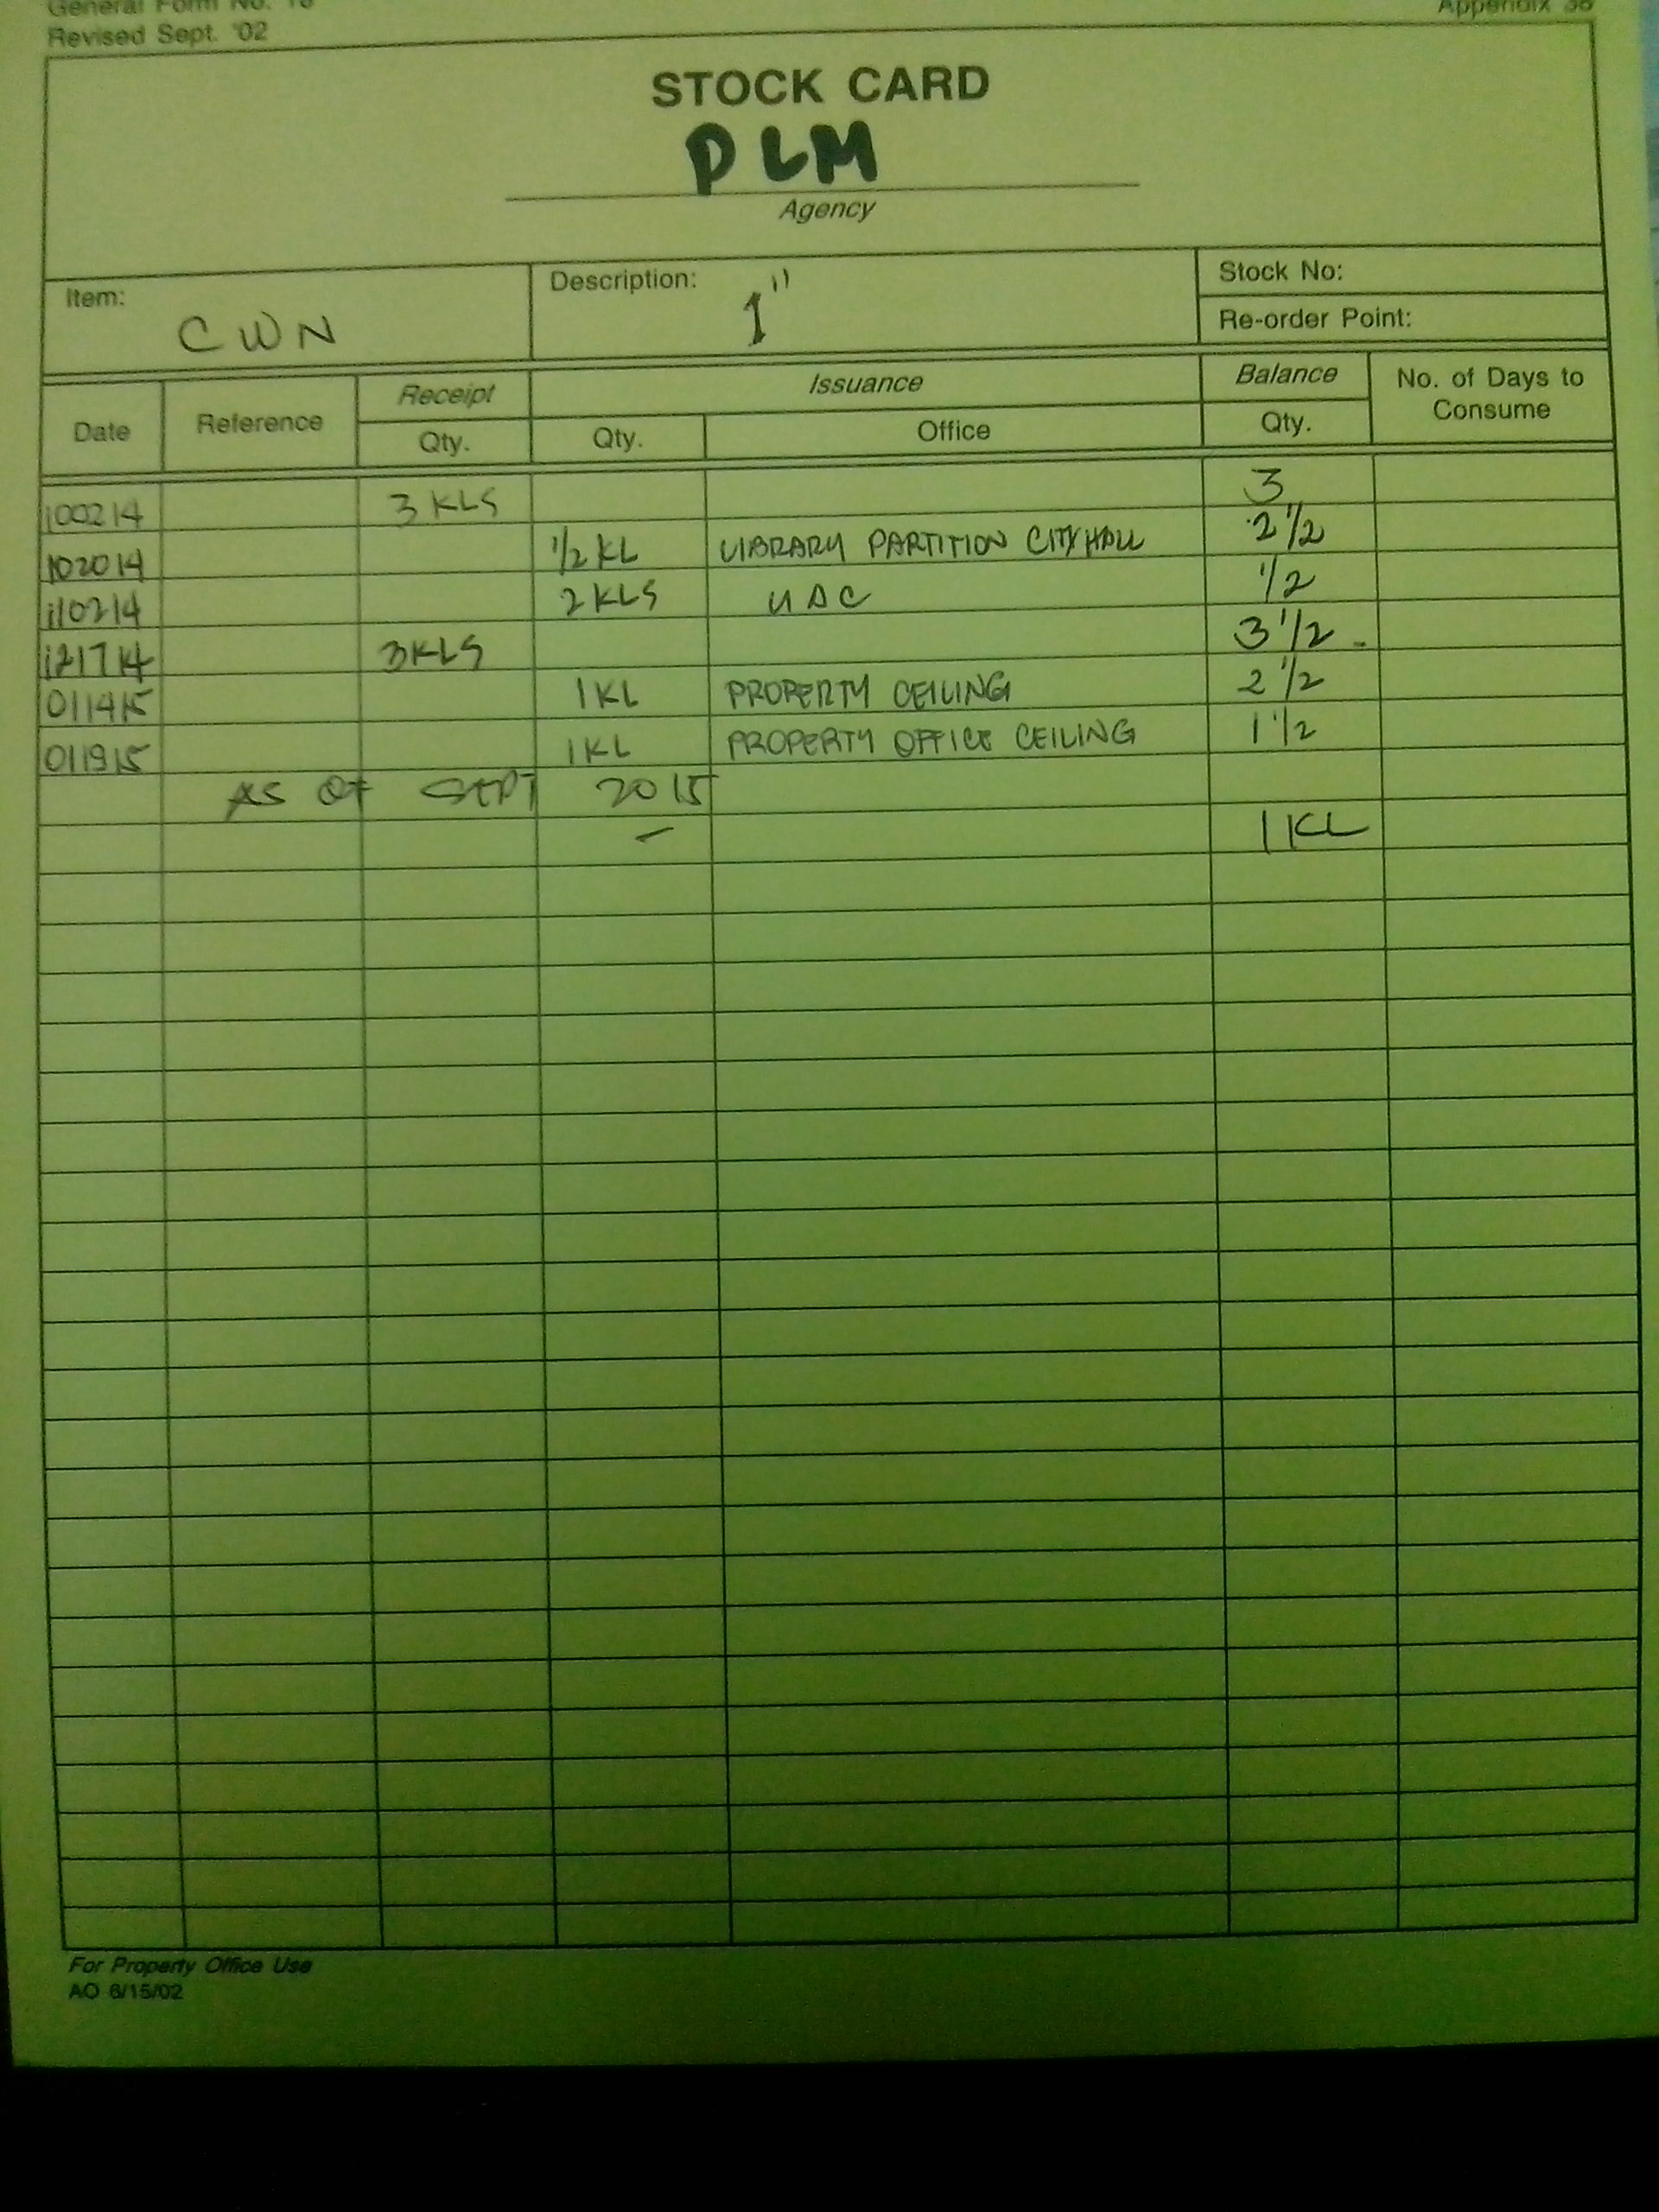 General Form No.
Revised Sept. '02
Appendix
STOCK CARD
PLM
Agency
Item: CWN
Description: 1"
Stock No:
Re-order Point:
Date Reference Receipt Issuance Balance No. of Days to Consume
Qty. Qty. Office Qty.
100214 3 KLS 3
102014 1/2 KL LIBRARY PARTITION CITY HALL 2 1/2
110214 2 KLS UAC 1/2
121714 3 KLS 3 1/2
011415 1 KL PROPERTY CEILING 2 1/2
011915 1 KL PROPERTY OFFICE CEILING 1 1/2
AS OF SEPT 2015
– 1 KL
For Property Office Use
AO 6/15/02